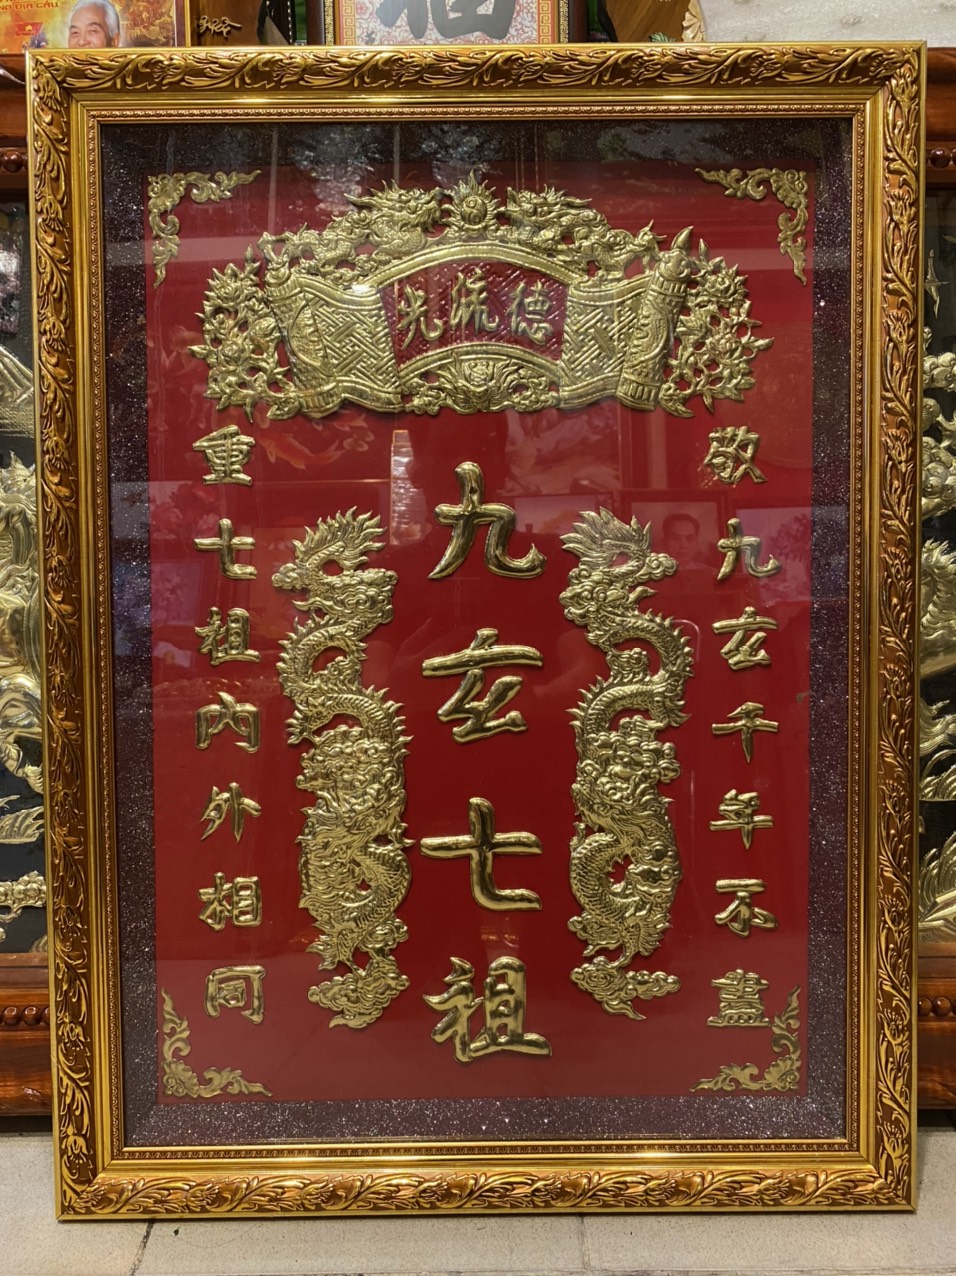 NG ĐỊA CẦU
德流光
敬九玄千年不盡
九玄七祖
重七祖內外相同